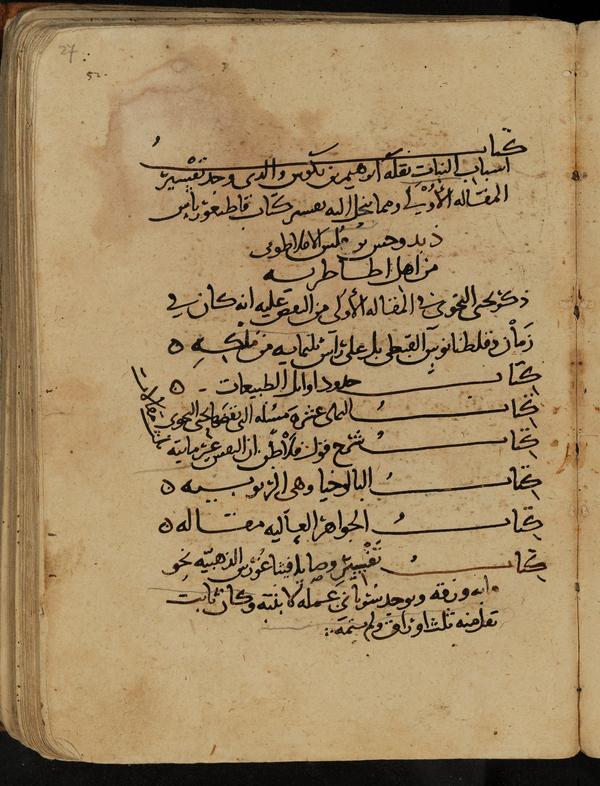 27
52
كتاب
اسباب النبات نقله ابرهيم بن بكوس والذى وجد تفسير
المقاله الأولى ومما ينحل اليه تفسير كتاب قاطيغورياس
ديدوخس برقلس الافلاطونى
من اهل اطاطريه
ذكر يحيى النحوى في المقاله الأولى من النقض عليه انه كان في
زمان دقلطيانوس القبطى بل على رأس ثلثمايه من ملكه ٥
كتاب حدود اوايل الطبيعات ٥
كتاب الثمانى عشره مسئله التى نقضها يحيى النحوى
كتاب شرح قول فلاطن ان النفس غير مايته
ثلث مقالات
كتاب الثالوجيا وهى الربوبيه ٥
كتاب الجواهر العاليه مقاله ٥
كتاب تفسير وصايا فيثاغورس الذهبيه نحو
مايه ورقه ويوجد سريانى عمله لابنته وكان ثابت
نقل منه ثلث اوراق ولم يتمه